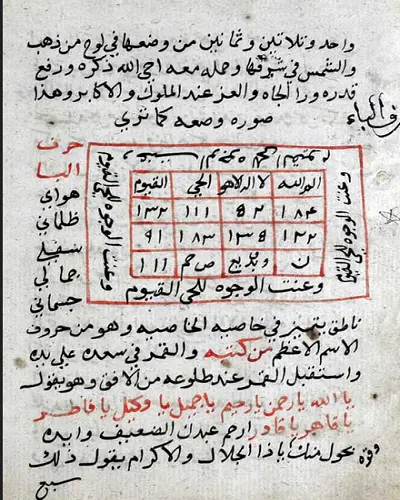 واحد وثلاثين وثمانين من وضعها في لوح من ذهب
والشمس في شرفها وحمله معه احي الله ذكره ورفع
قدره ورا الجاه والعز عند الملوك والاكابر وهذا
صوره وضعه كما تري
حرف
البا
هواي
ظلماني
سفلي
جمالي
جسماني
وعنت الوجوه للحي القيوم
القيوم الحي لا اله الا هو الم الله
١٣٢ ١١١ ١٨٤
٩١ ١٨٣ ١٣٨ ١٢٢
١١١ ن
وعنت الوجوه للحي القيوم
وعنت الوجوه للحي القيوم
ناطق يتميز في خاصيه الخاصيه وهو من حروف
الاسم الاعظم من كتبه والقمر في سعده علي يده
واستقبل القمر عند طلوعه من الافق وهو يقول
يا الله يا رحمن يا رحيم يا جميل يا وكيل يا فاطر
يا قاهر يا قادر ارحم عبدك الضعيف وايده
بحول منك يا ذا الجلال والاكرام يقول ذلك
سبع